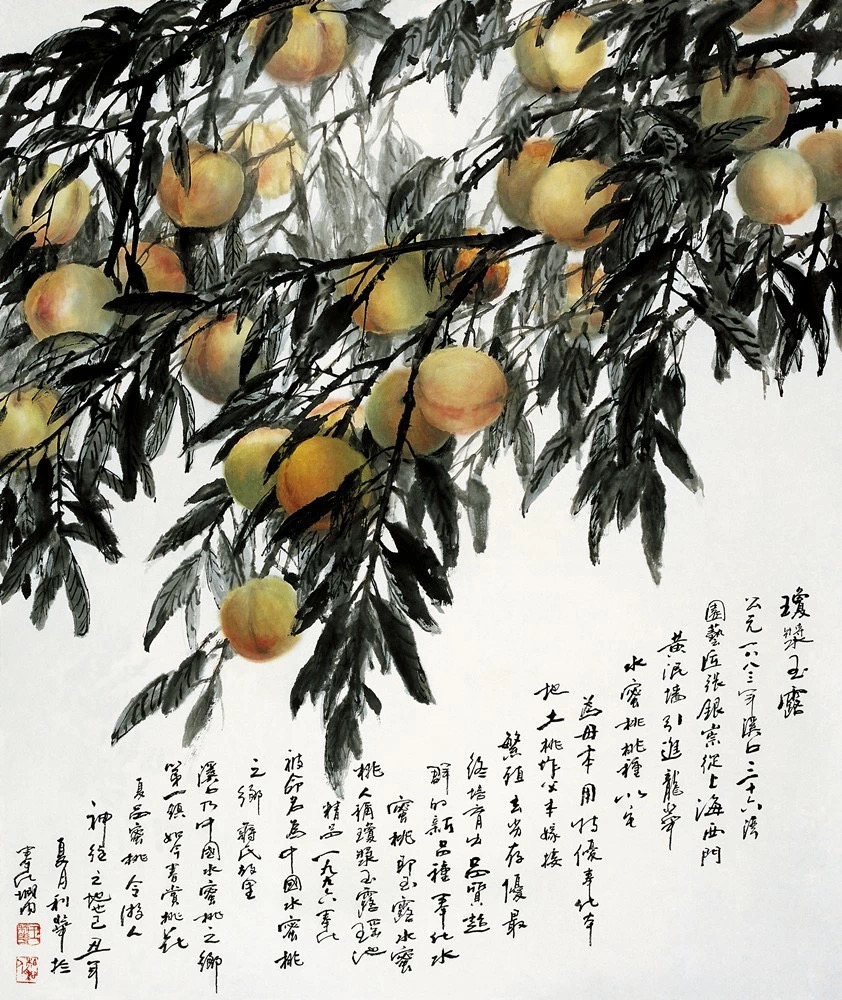 瓊漿玉露
公元一八八三年溪口三十六灣
園藝匠張銀崇從上海西門
黃泥墻引進龍華
水蜜桃桃種以它
為母本用特優奉化本
地土桃作父本嫁接
繁殖去劣存優最
終培育出品質超
群的新品種奉化水
蜜桃即玉露水蜜
桃人稱瓊漿玉露瑤池
精品一九九六奉化
被命名為中國水蜜桃
之鄉蔣氏故里
溪口乃中國水蜜桃之鄉
第一鎮如今春賞桃花
夏品蜜桃令游人
神往之地也己丑年
夏月利華於
奉化城內